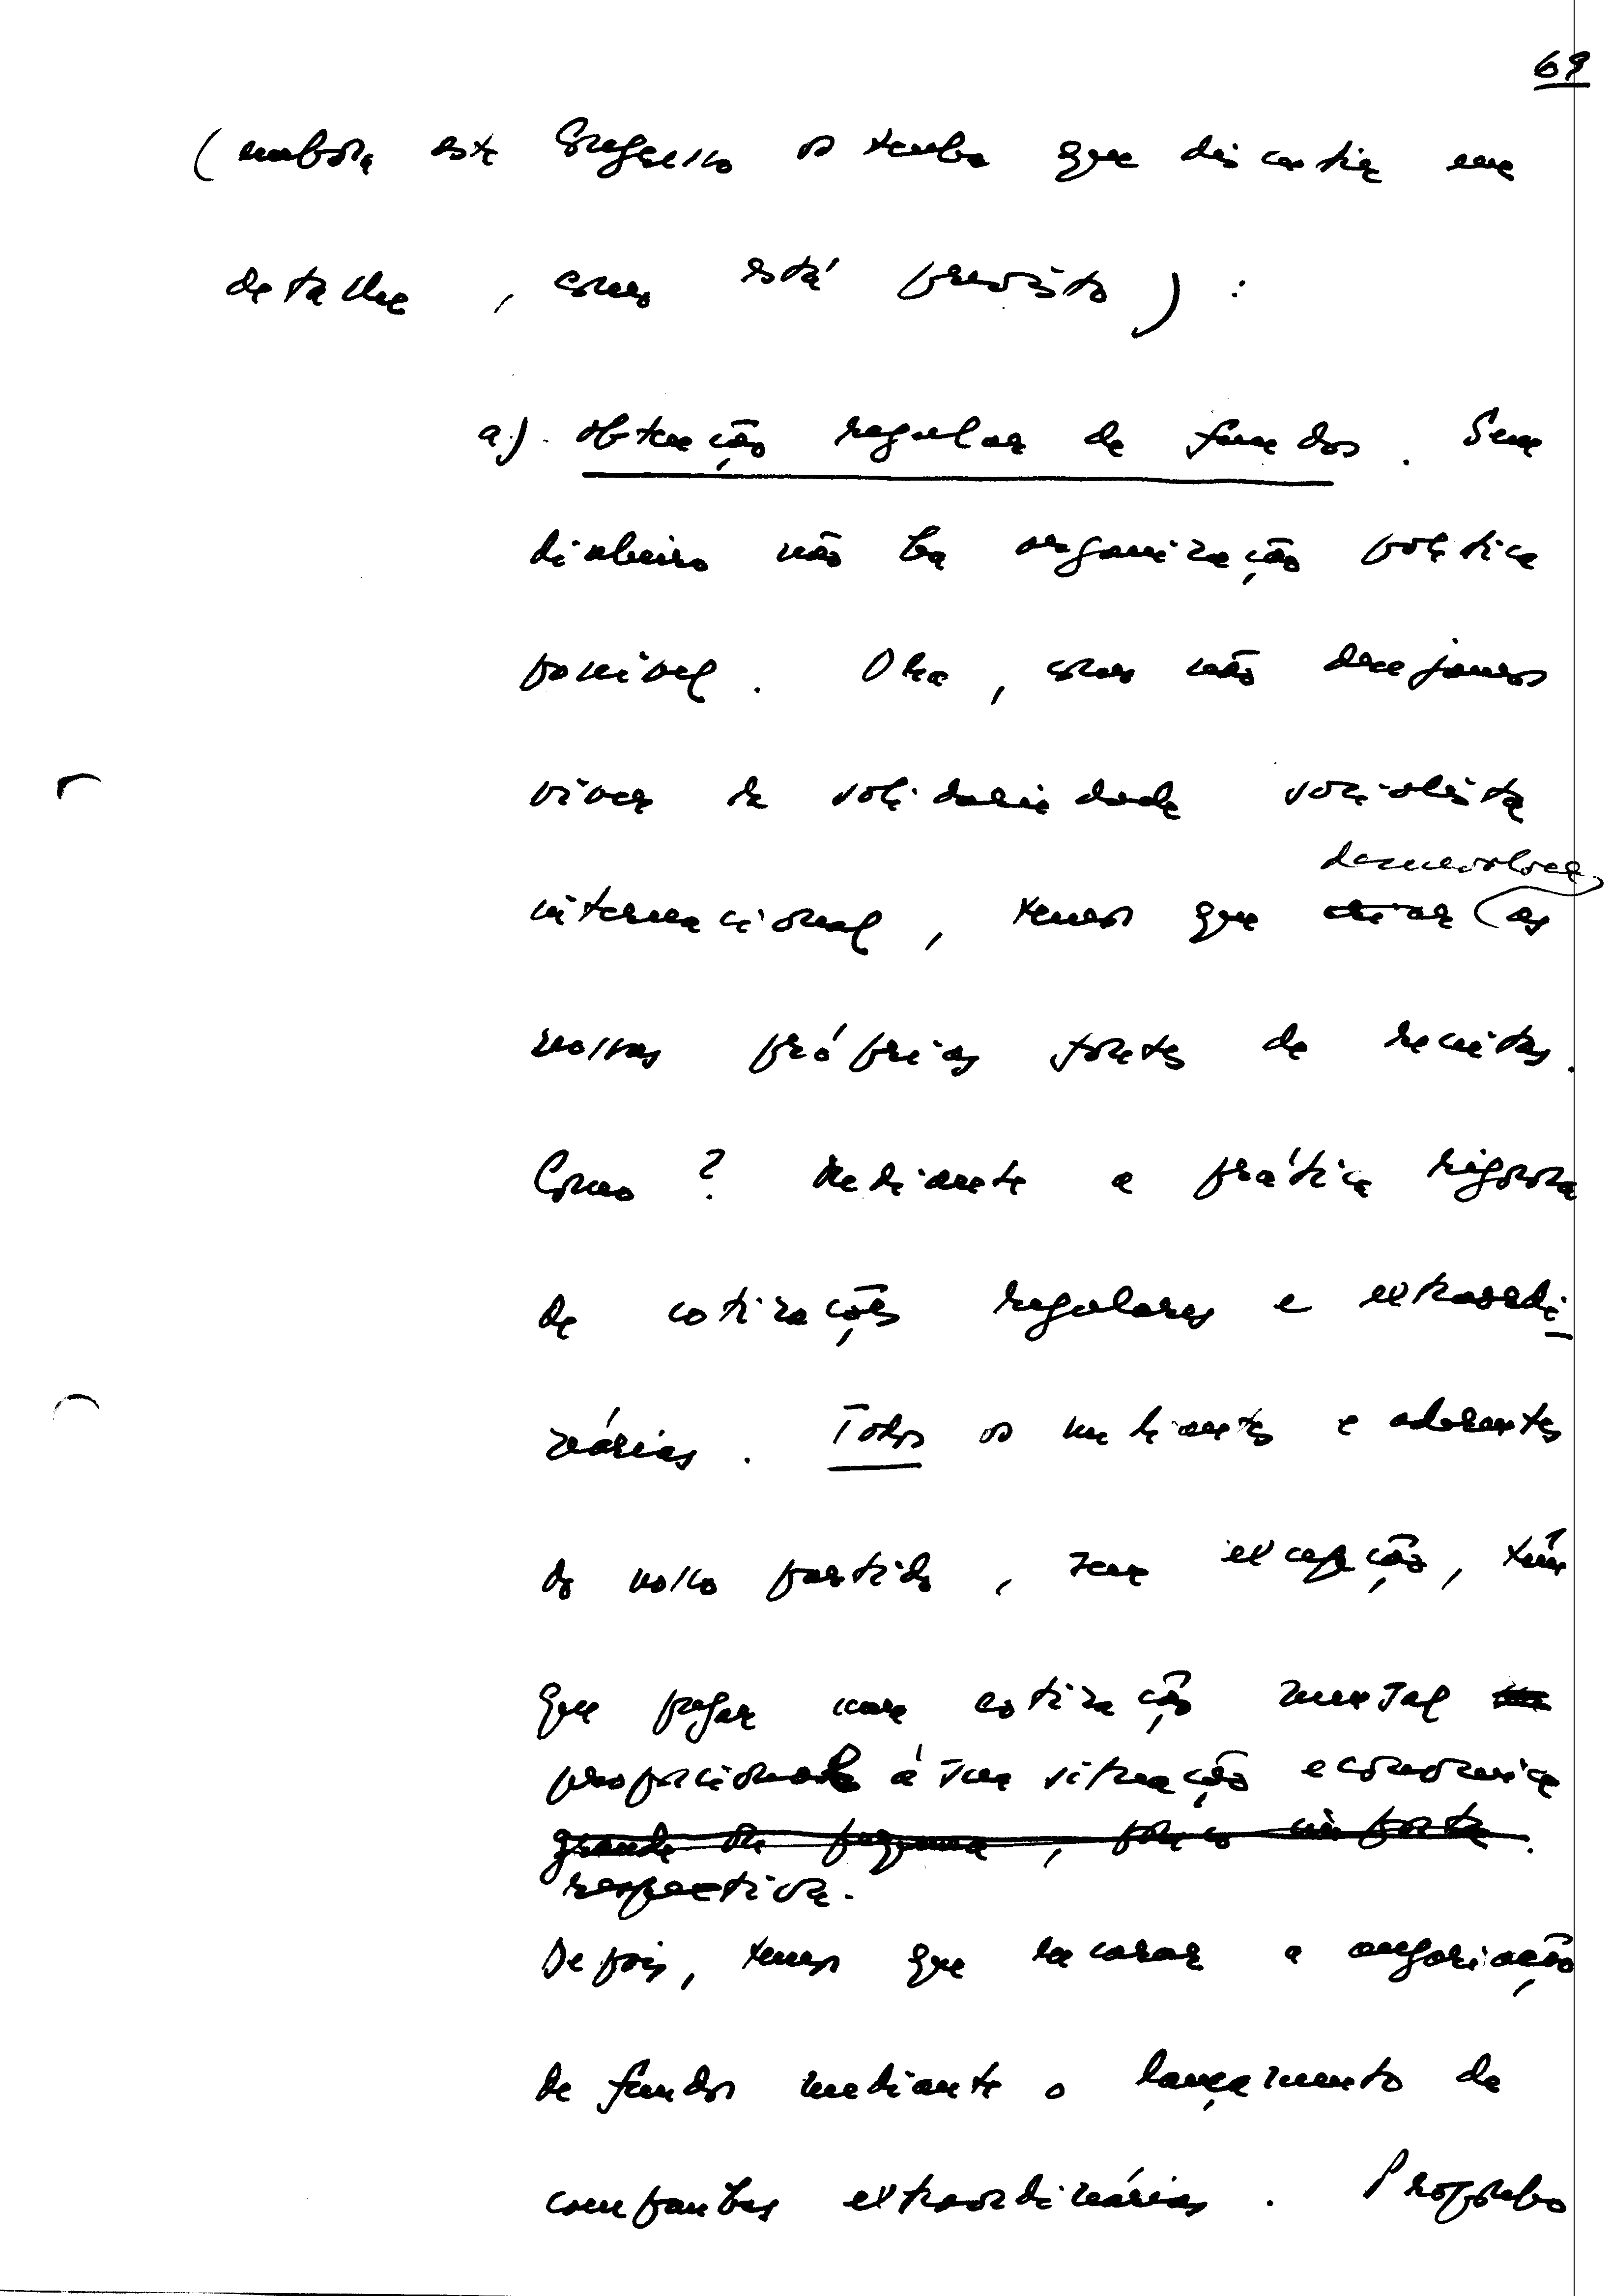 69
(embora este Congresso o tenha que discutir em
detalhe, como está previsto):
a). obtenção regular de fundos. Sem
dinheiro não ha organização politica
possivel. Ora, como não desejamos
viver da solidariedade socialista
desenvolver
internacional, temos que criar as
nossas próprias fontes de receitas.
Como? Mediante a prática rigorosa
de cotizações regulares e extraordi-
nárias. Todos os militantes e aderentes
do nosso partido, sem excepção, têm
que pagar uma cotização mensal
proporcional á sua situação economica
grande ou pequena, pouco importa.
respectiva.
Depois, temos que encarar a angariação
de fundos mediante o lançamento de
campanhas extraordinárias. Proponho